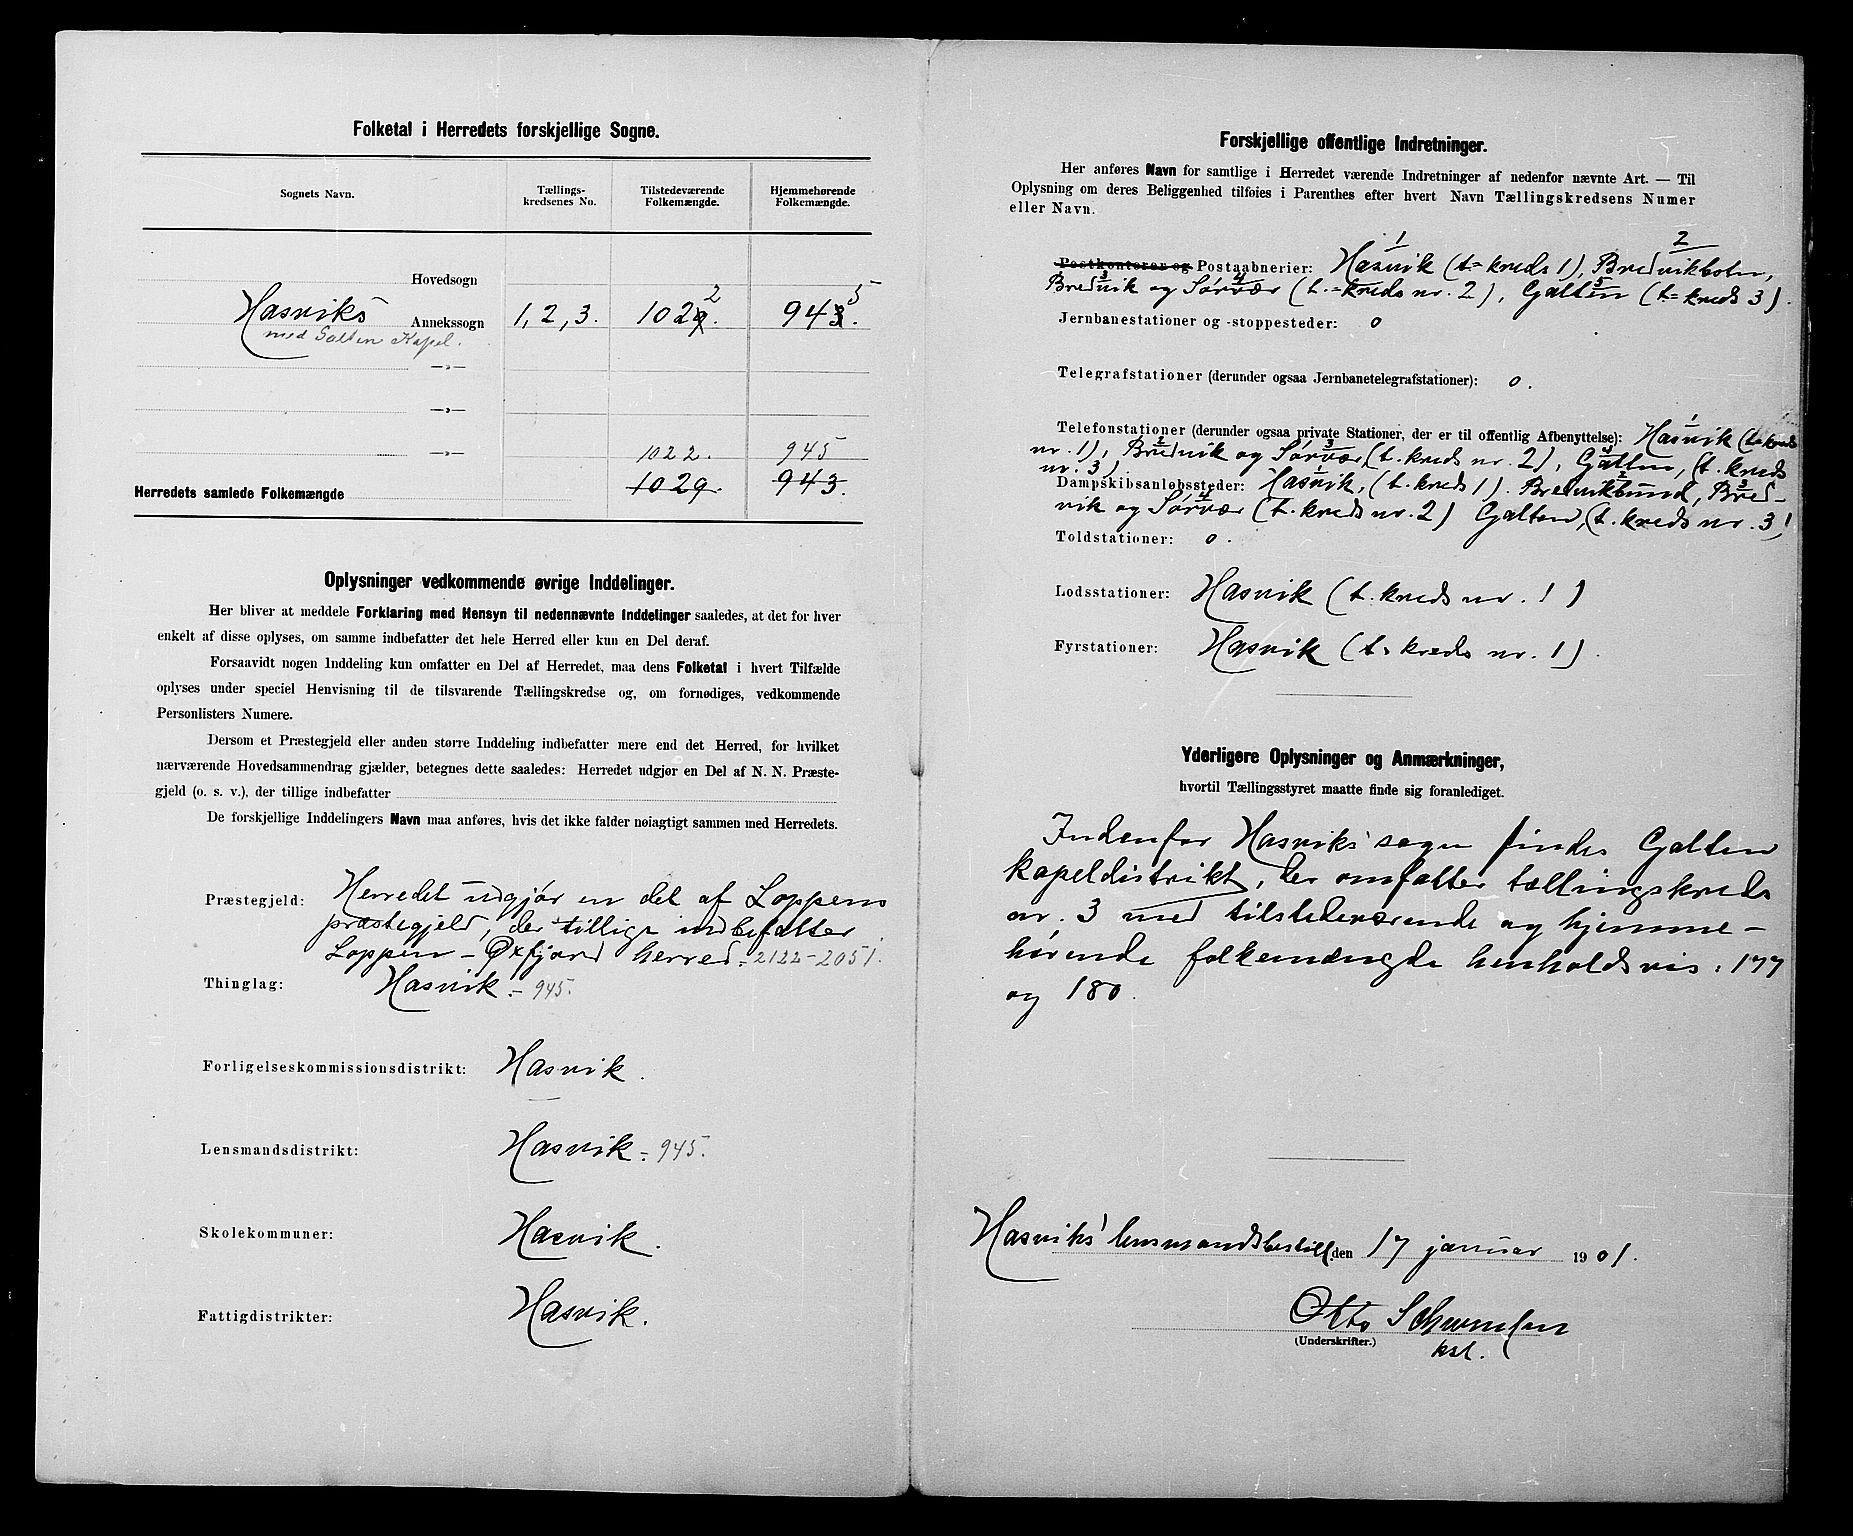 Folketal i Herredets forskjellige Sogne.
Sognets Navn.
Tællings-
kredsenes No.
Tilstedeværende
Folkemængde.
Hjemmehørende
Folkemængde.
Hovedsogn
Hasviks Annekssogn 1, 2, 3. 1029. 2 943. 5
med Galten Kapel.
—„—
—„—
—„— 1022. 945
Herredets samlede Folkemængde 1029. 943.
Oplysninger vedkommende øvrige Inddelinger.
Her bliver at meddele Forklaring med Hensyn til nedennævnte Inddelinger saaledes, at det for hver
enkelt af disse oplyses, om samme indbefatter det hele Herred eller kun en Del deraf.
Forsaavidt nogen Inddeling kun omfatter en Del af Herredet, maa dens Folketal i hvert Tilfælde
oplyses under speciel Henvisning til de tilsvarende Tællingskredse og, om fornødiges, vedkommende
Personlisters Numere.
Dersom et Præstegjeld eller anden større Inddeling indbefatter mere end det Herred, for hvilket
nærværende Hovedsammendrag gjælder, betegnes dette saaledes: Herredet udgjør en Del af N. N. Præste-
gjeld (o. s. v.), der tillige indbefatter
De forskjellige Inddelingers Navn maa anføres, hvis det ikke falder nøiagtigt sammen med Herredets.
Præstegjeld: Herredet udgjør en del af Loppens
præstegjeld, der tillige indbefatter
Loppen - Øxfjord herred = 2122 - 2051.
Thinglag: Hasvik = 945.
Forligelseskommissionsdistrikt: Hasvik.
Lensmandsdistrikt: Hasvik = 945.
Skolekommuner: Hasvik.
Fattigdistrikter: Hasvik.
Forskjellige offentlige Indretninger.
Her anføres Navn for samtlige i Herredet værende Indretninger af nedenfor nævnte Art. — Til
Oplysning om deres Beliggenhed tilføies i Parenthes efter hvert Navn Tællingskredsens Numer
eller Navn.
1 2
Postkontorer og Postaabnerier: Hasvik (t= kreds 1), Bredvikbotn,
3 4 5
Bredvik og Sørvær (t.= kreds nr. 2), Galten (t= kreds 3).
Jernbanestationer og -stoppesteder: 0
Telegrafstationer (derunder ogsaa Jernbanetelegrafstationer): 0.
1
Telefonstationer (derunder ogsaa private Stationer, der er til offentlig Afbenyttelse): Hasvik (t= kreds
2 3 4
nr. 1), Bredvik og Sørvær, (t. kreds nr. 2), Galten, (t. kreds
nr. 3)
1 2 3
Dampskibsanløbssteder: Hasvik, (t. kreds 1). Bredvikbund, Bred-
4
vik og Sørvær (t. kreds nr. 2) Galten, (t. kreds nr. 3)
Toldstationer: 0.
Lodsstationer: Hasvik (t. kreds nr. 1)
Fyrstationer: Hasvik (t= kreds nr. 1).
Yderligere Oplysninger og Anmærkninger,
hvortil Tællingsstyret maatte finde sig foranlediget.
Indenfor Hasviks sogn findes Galten
kapeldistrikt, der omfatter tællingskreds
nr. 3 med tilstedeværende og hjemme-
hørende folkemængde henholdsvis: 177
og 180.
Hasviks' lensmandsbestill. den 17 januar 1901.
Otto
(Underskrifter.)
kst.